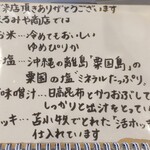 来店頂きありがとうございます
るみや商店では
お米…冷めてもおいしい
ゆめぴりか
塩…沖縄の離島「粟国島」の
粟国の塩 ミネラルたっぷり。
味噌汁…日高昆布とかつおぶしで
しっかりと出汁をとってい
ッキ…苫小牧でとれた「活ホッキ
仕入れています